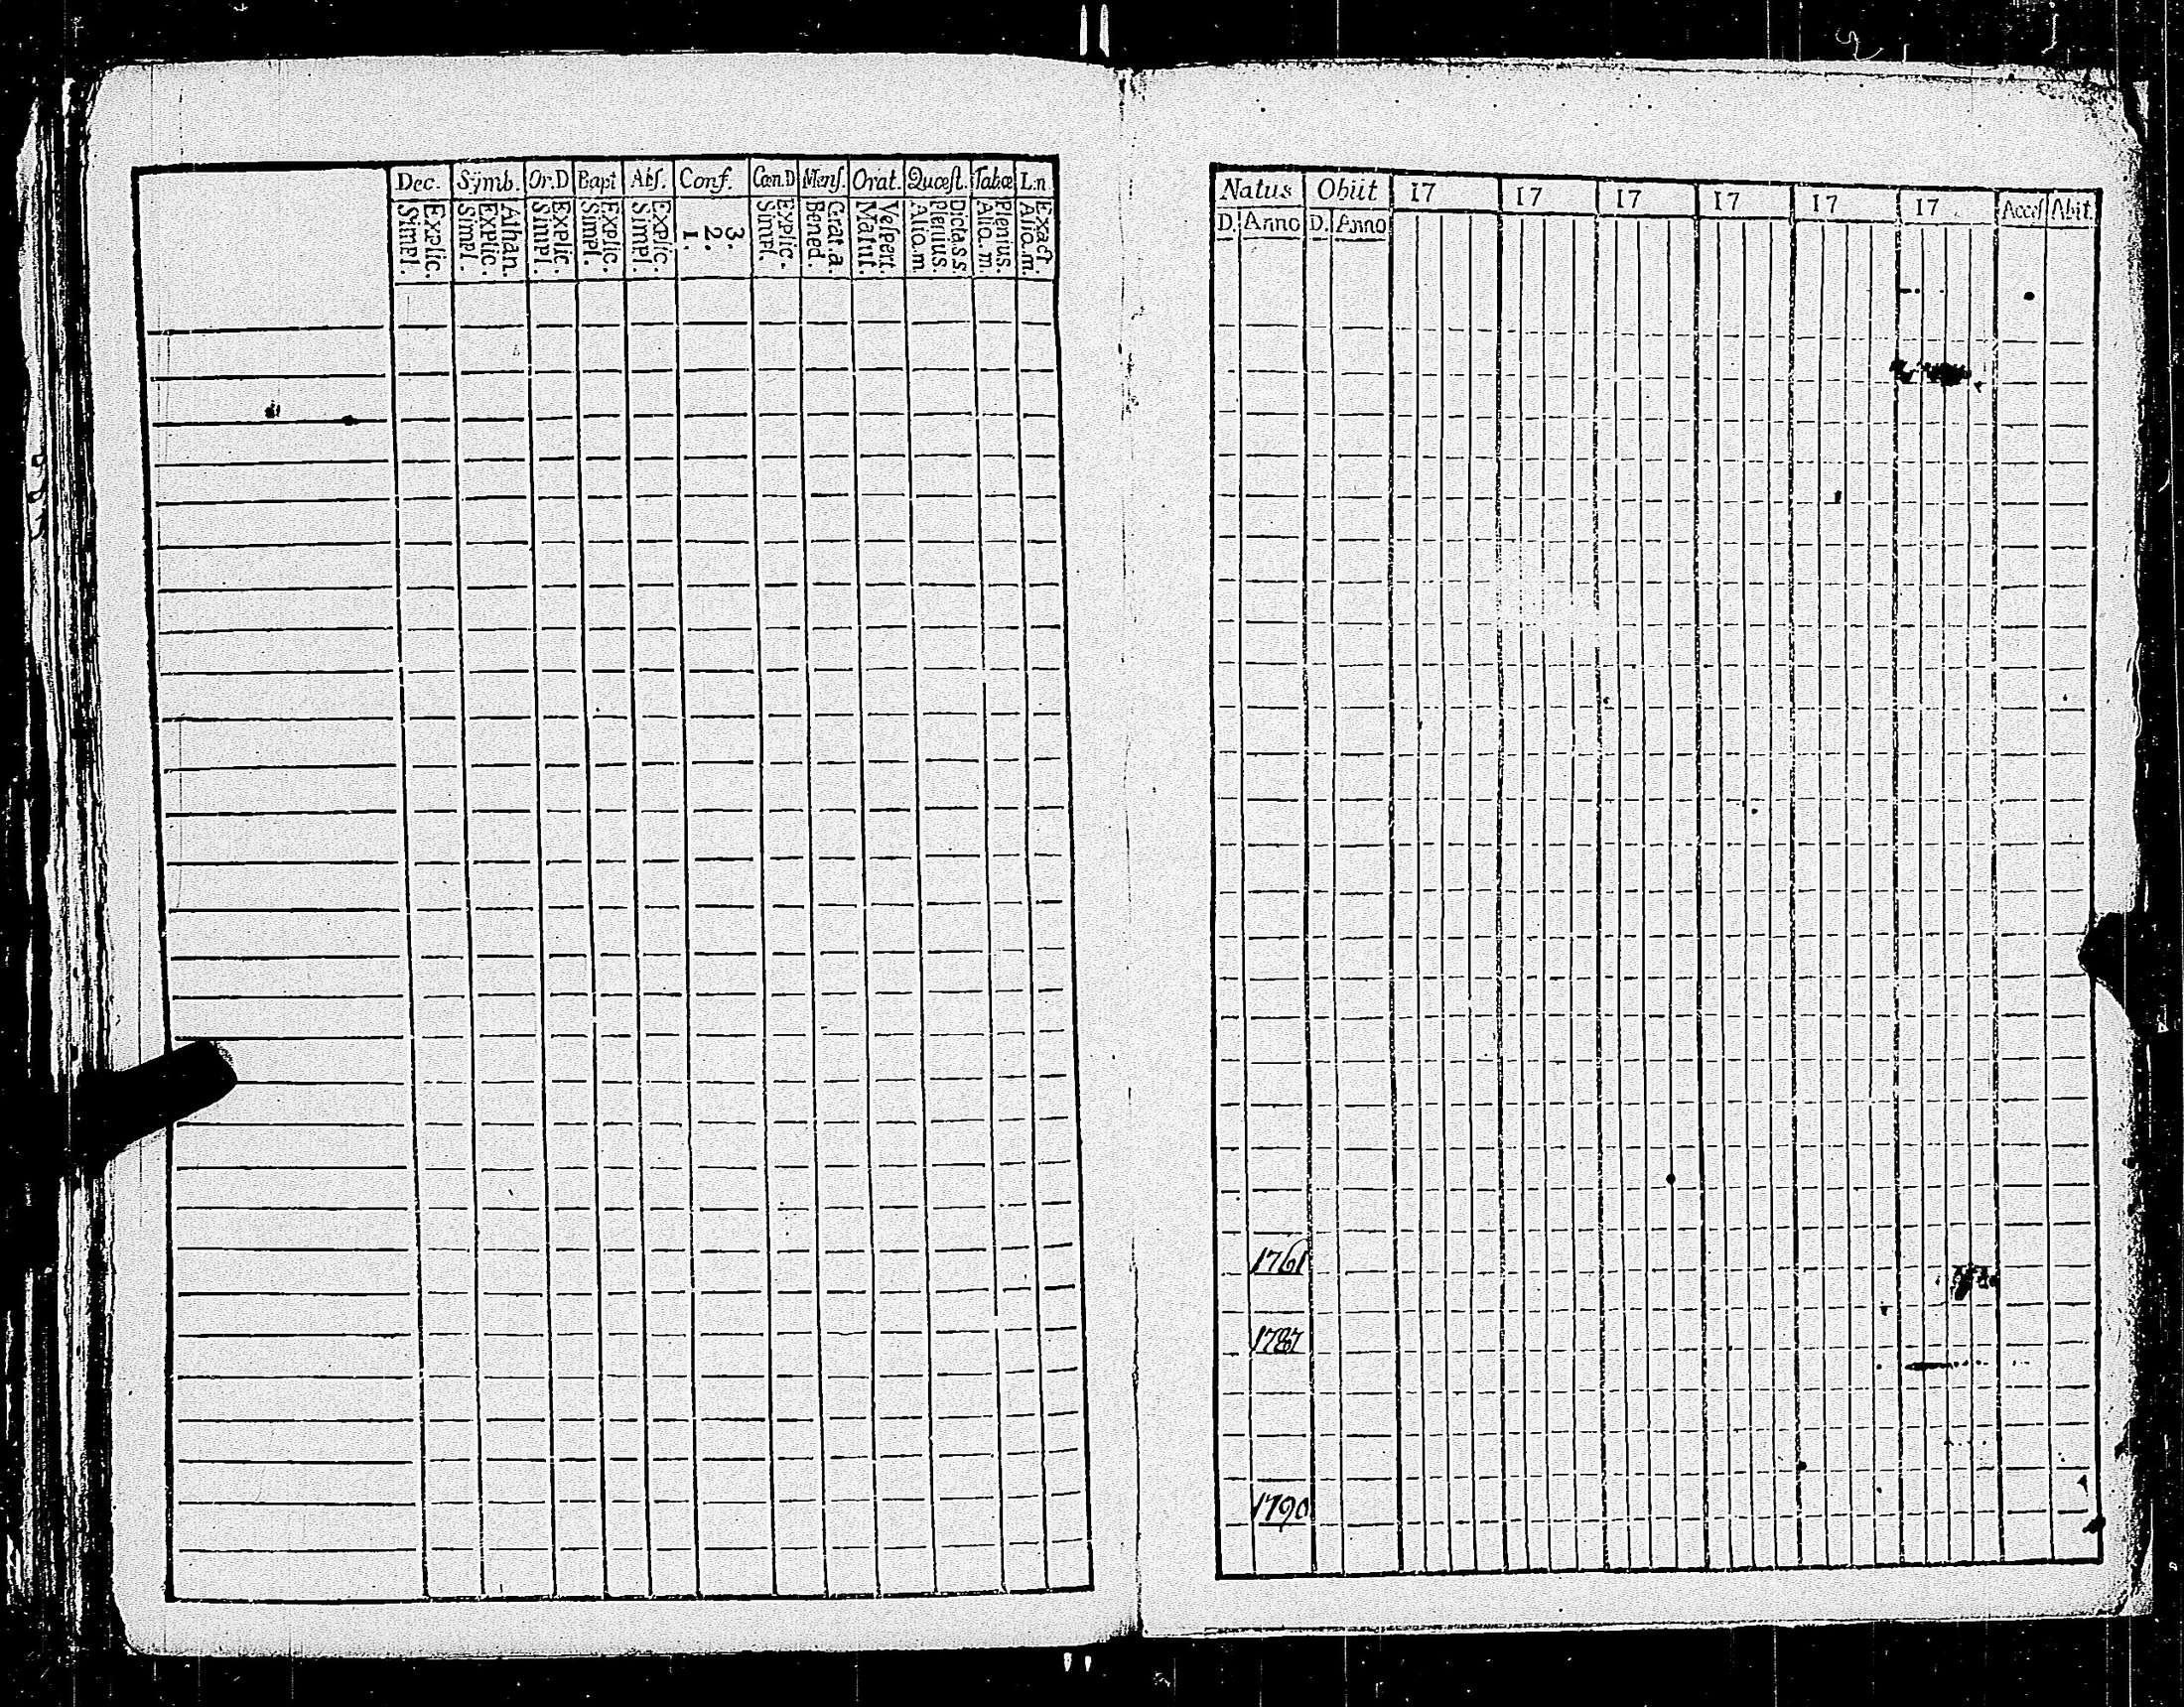 Dec. Symb. Or.D Bapt Abſ. Conf. Cœn.D Menſ. Orat. Quæſt. Tabæ L.n.
Explic.
Simpl.
Athan.
Explic.
Simpl.
Explic.
Simpl.
Explic.
Simpl.
Explic.
Simpl.
3.
2.
1.
Explic.
Simpl.
Grat.a.
Bened.
Veſpert.
Matut.
Dicta.s.s.
Plenius.
Alio.m.
Plenius.
Alio.m.
Exact.
Alio.m.
Natus Obiit 17 17 17 17 17 17 Acceſ Abit.
D. Anno D. Anno
1761
1787
1790